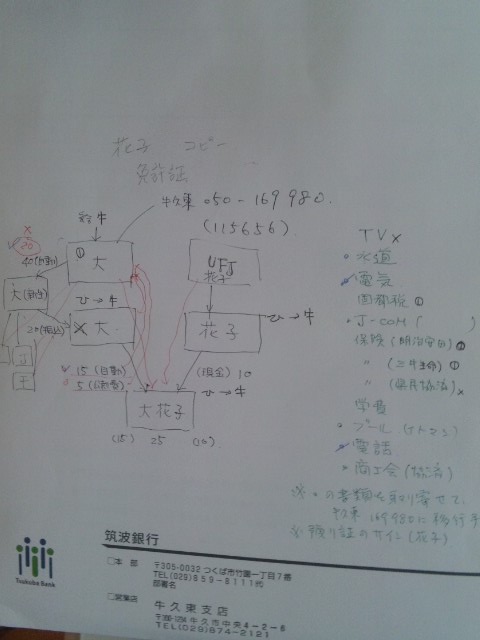 花子 コピー
免許証
牛久東 050-169980.
(115656)
給牛
×
20
40(自動)
① 大
UFJ
花子
大(新生)
ひ→牛
20(振込)
×大
花子
ひ→牛
J
王
15(自動)
5(治費)
(現金)10
大花子
ひ→牛
(15) 25
TV×
水道
電気
固都税 ①
J-COM(
保険(明治安田)
〃(三井生命)①
〃(県民共済)×
学費
プール(イトマン)
電話
商工会(協済)
※・の書類を取り寄せて、
牛久東 169980に移行手
※預り証のサイン(花子)
筑波銀行
Tsukuba Bank
□本 部 〒305-0032 つくば市竹園一丁目7番
TEL(029)859-8111㈹
部署名
□営業店 牛久東支店
牛久市中央4-2-6
TEL(029)874-2121